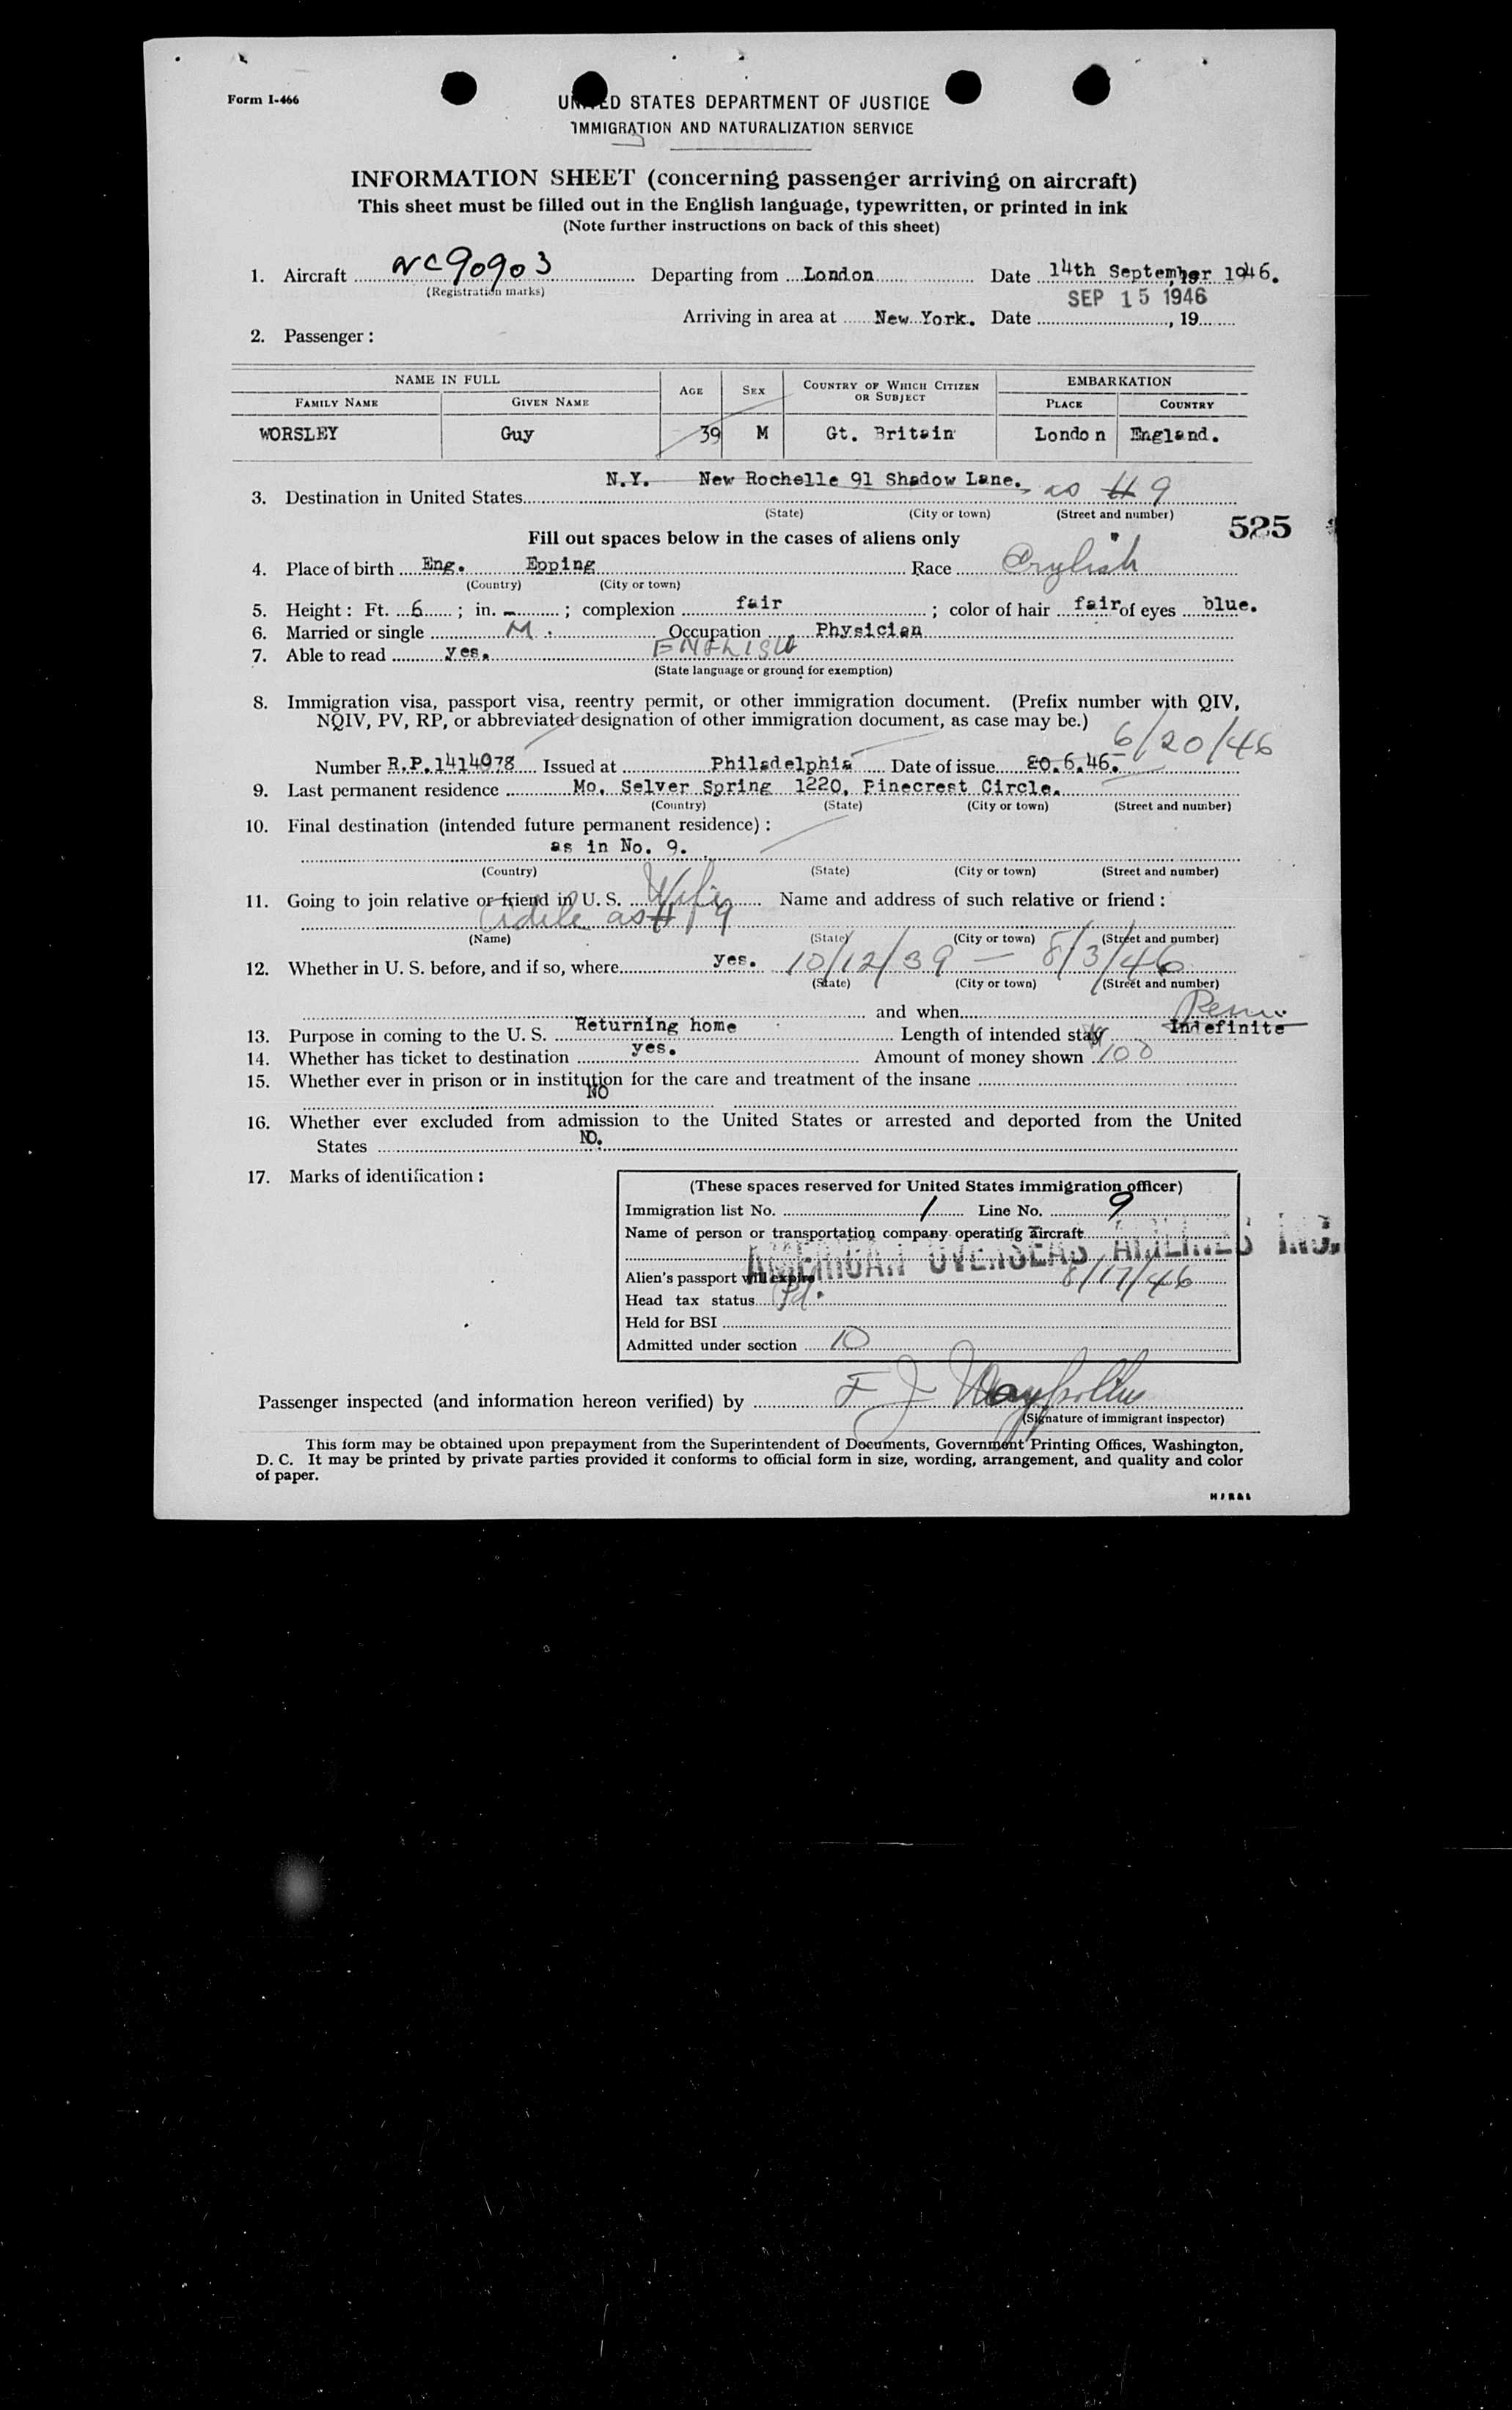 Form I-466
UNITED STATES DEPARTMENT OF JUSTICE
IMMIGRATION AND NATURALIZATION SERVICE
INFORMATION SHEET (concerning passenger arriving on aircraft)
This sheet must be filled out in the English language, typewritten, or printed in ink
(Note further instructions on back of this sheet)
1. Aircraft NC90903 Departing from London Date 14th September 1946.
(Registration marks)
SEP 15 1946
Arriving in area at New York. Date , 19
2. Passenger:
NAME IN FULL AGE SEX COUNTRY OF WHICH CITIZEN OR SUBJECT EMBARKATION
FAMILY NAME GIVEN NAME PLACE COUNTRY
WORSLEY Guy 39 M Gt. Britain London England.
N.Y. New Rochelle 91 Shadow Lane. as # 9
3. Destination in United States
(State) (City or town) (Street and number)
525
Fill out spaces below in the cases of aliens only
4. Place of birth Eng. Epping Race English
(Country) (City or town)
5. Height: Ft. 6 ; in. - ; complexion fair ; color of hair fair of eyes blue.
6. Married or single M. Occupation Physician
7. Able to read yes. ENGLISH
(State language or ground for exemption)
8. Immigration visa, passport visa, reentry permit, or other immigration document. (Prefix number with QIV,
NQIV, PV, RP, or abbreviated designation of other immigration document, as case may be.)
6/20/46
Number R.P.1414078 Issued at Philadelphia Date of issue 20.6.46.
9. Last permanent residence Mo. Selver Spring 1220, Pinecrest Circle.
(Country) (State) (City or town) (Street and number)
10. Final destination (intended future permanent residence):
as in No. 9.
(Country) (State) (City or town) (Street and number)
11. Going to join relative or friend in U. S. Wife Name and address of such relative or friend:
as # 9
(Name) (State) (City or town) (Street and number)
12. Whether in U. S. before, and if so, where yes. 10/12/39 — 8/3/46
(State) (City or town) (Street and number)
and when
Perm.
13. Purpose in coming to the U. S. Returning home Length of intended stay Indefinite
14. Whether has ticket to destination yes. Amount of money shown 100
15. Whether ever in prison or in institution for the care and treatment of the insane
NO
16. Whether ever excluded from admission to the United States or arrested and deported from the United
States NO.
17. Marks of identification:
(These spaces reserved for United States immigration officer)
Immigration list No. 1 Line No. 9
Name of person or transportation company operating aircraft
AMERICAN OVERSEAS AIRLINES INC.
Alien's passport will expire 8/17/46
Head tax status Pd.
Held for BSI
Admitted under section 10
Passenger inspected (and information hereon verified) by F J
(Signature of immigrant inspector)
This form may be obtained upon prepayment from the Superintendent of Documents, Government Printing Offices, Washington,
D. C. It may be printed by private parties provided it conforms to official form in size, wording, arrangement, and quality and color
of paper.